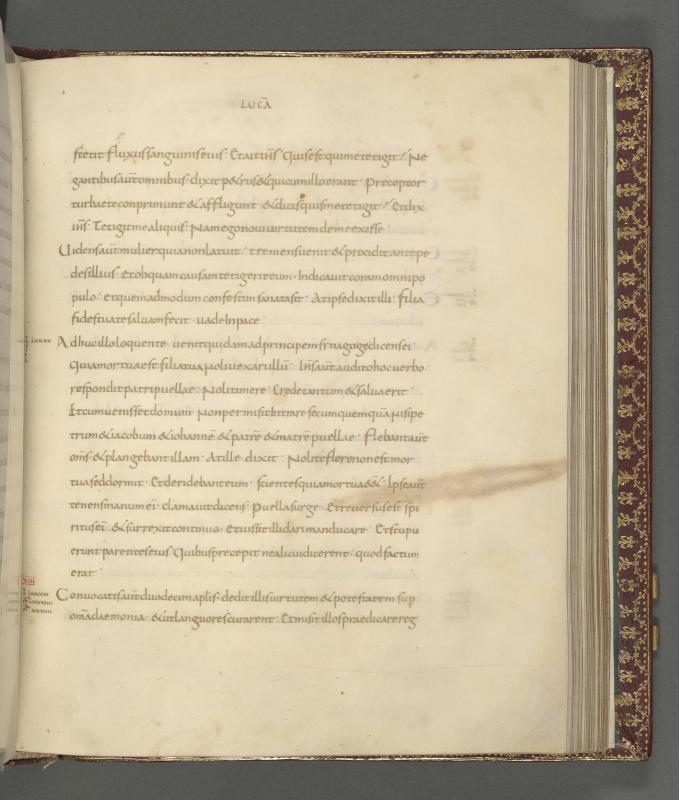 LUCĀ
stetit fluxus sanguinis eius· Et ait ihs̄ Quis est qui me tetigit? Ne
gantibus aūt omnibus· dixit petrus & qui cum illo erant· Preceptor
turbae te conprimunt & affligunt & dicis quis me tetigit? Et dix
ihs̄ Tetigit me aliquis· Nam ego noui uirtutem de me exisse·
Uidens aūt mulier quia non latuit· tremens uenit & procidit ante pe
des illius· et ob quam causam tetigerit eum· Indicauit coram omni po
pulo· et quemadmodum confestim sanata sit· At ipse dixit illi· filia
fides tua te saluam fecit· uade In pace
lxxxv Adhuc illo loquente· uenit quidam ad principem synagoge dicens ei
quia mortua est filia tua Noli uexare illū· Ihs̄ aūt audito hoc uerbo
respondit patri puellae· Noli timere Crede tantum & salua erit·
Et cum uenisset domum Non permisit Intrare secum quemquā Nisi pe
trum & iacobum & iohannē & patrē & matrē puellae· Flebant aūt
om̄s & plangebant illam· At ille dixit· Nolite flere non est mor
tua sed dormit· Et deridebant eum· scientes quia mortua e&· Ipse aūt
tenens manum ei· clamauit dicens· Puella surge· Et reuersus est spi
ritus eī· & surrexit continuo· et iussit illi dari manducare· Et stupu
erunt parentes eius· Quibus precepit ne alicui dicerent· quod factum
erat·
Conuocatis aūt duodecim aplīs· dedit illis uirtutem & potestatem sup̄
omā daemonia· & ut languores curarent· Et misit illos praedicare reg